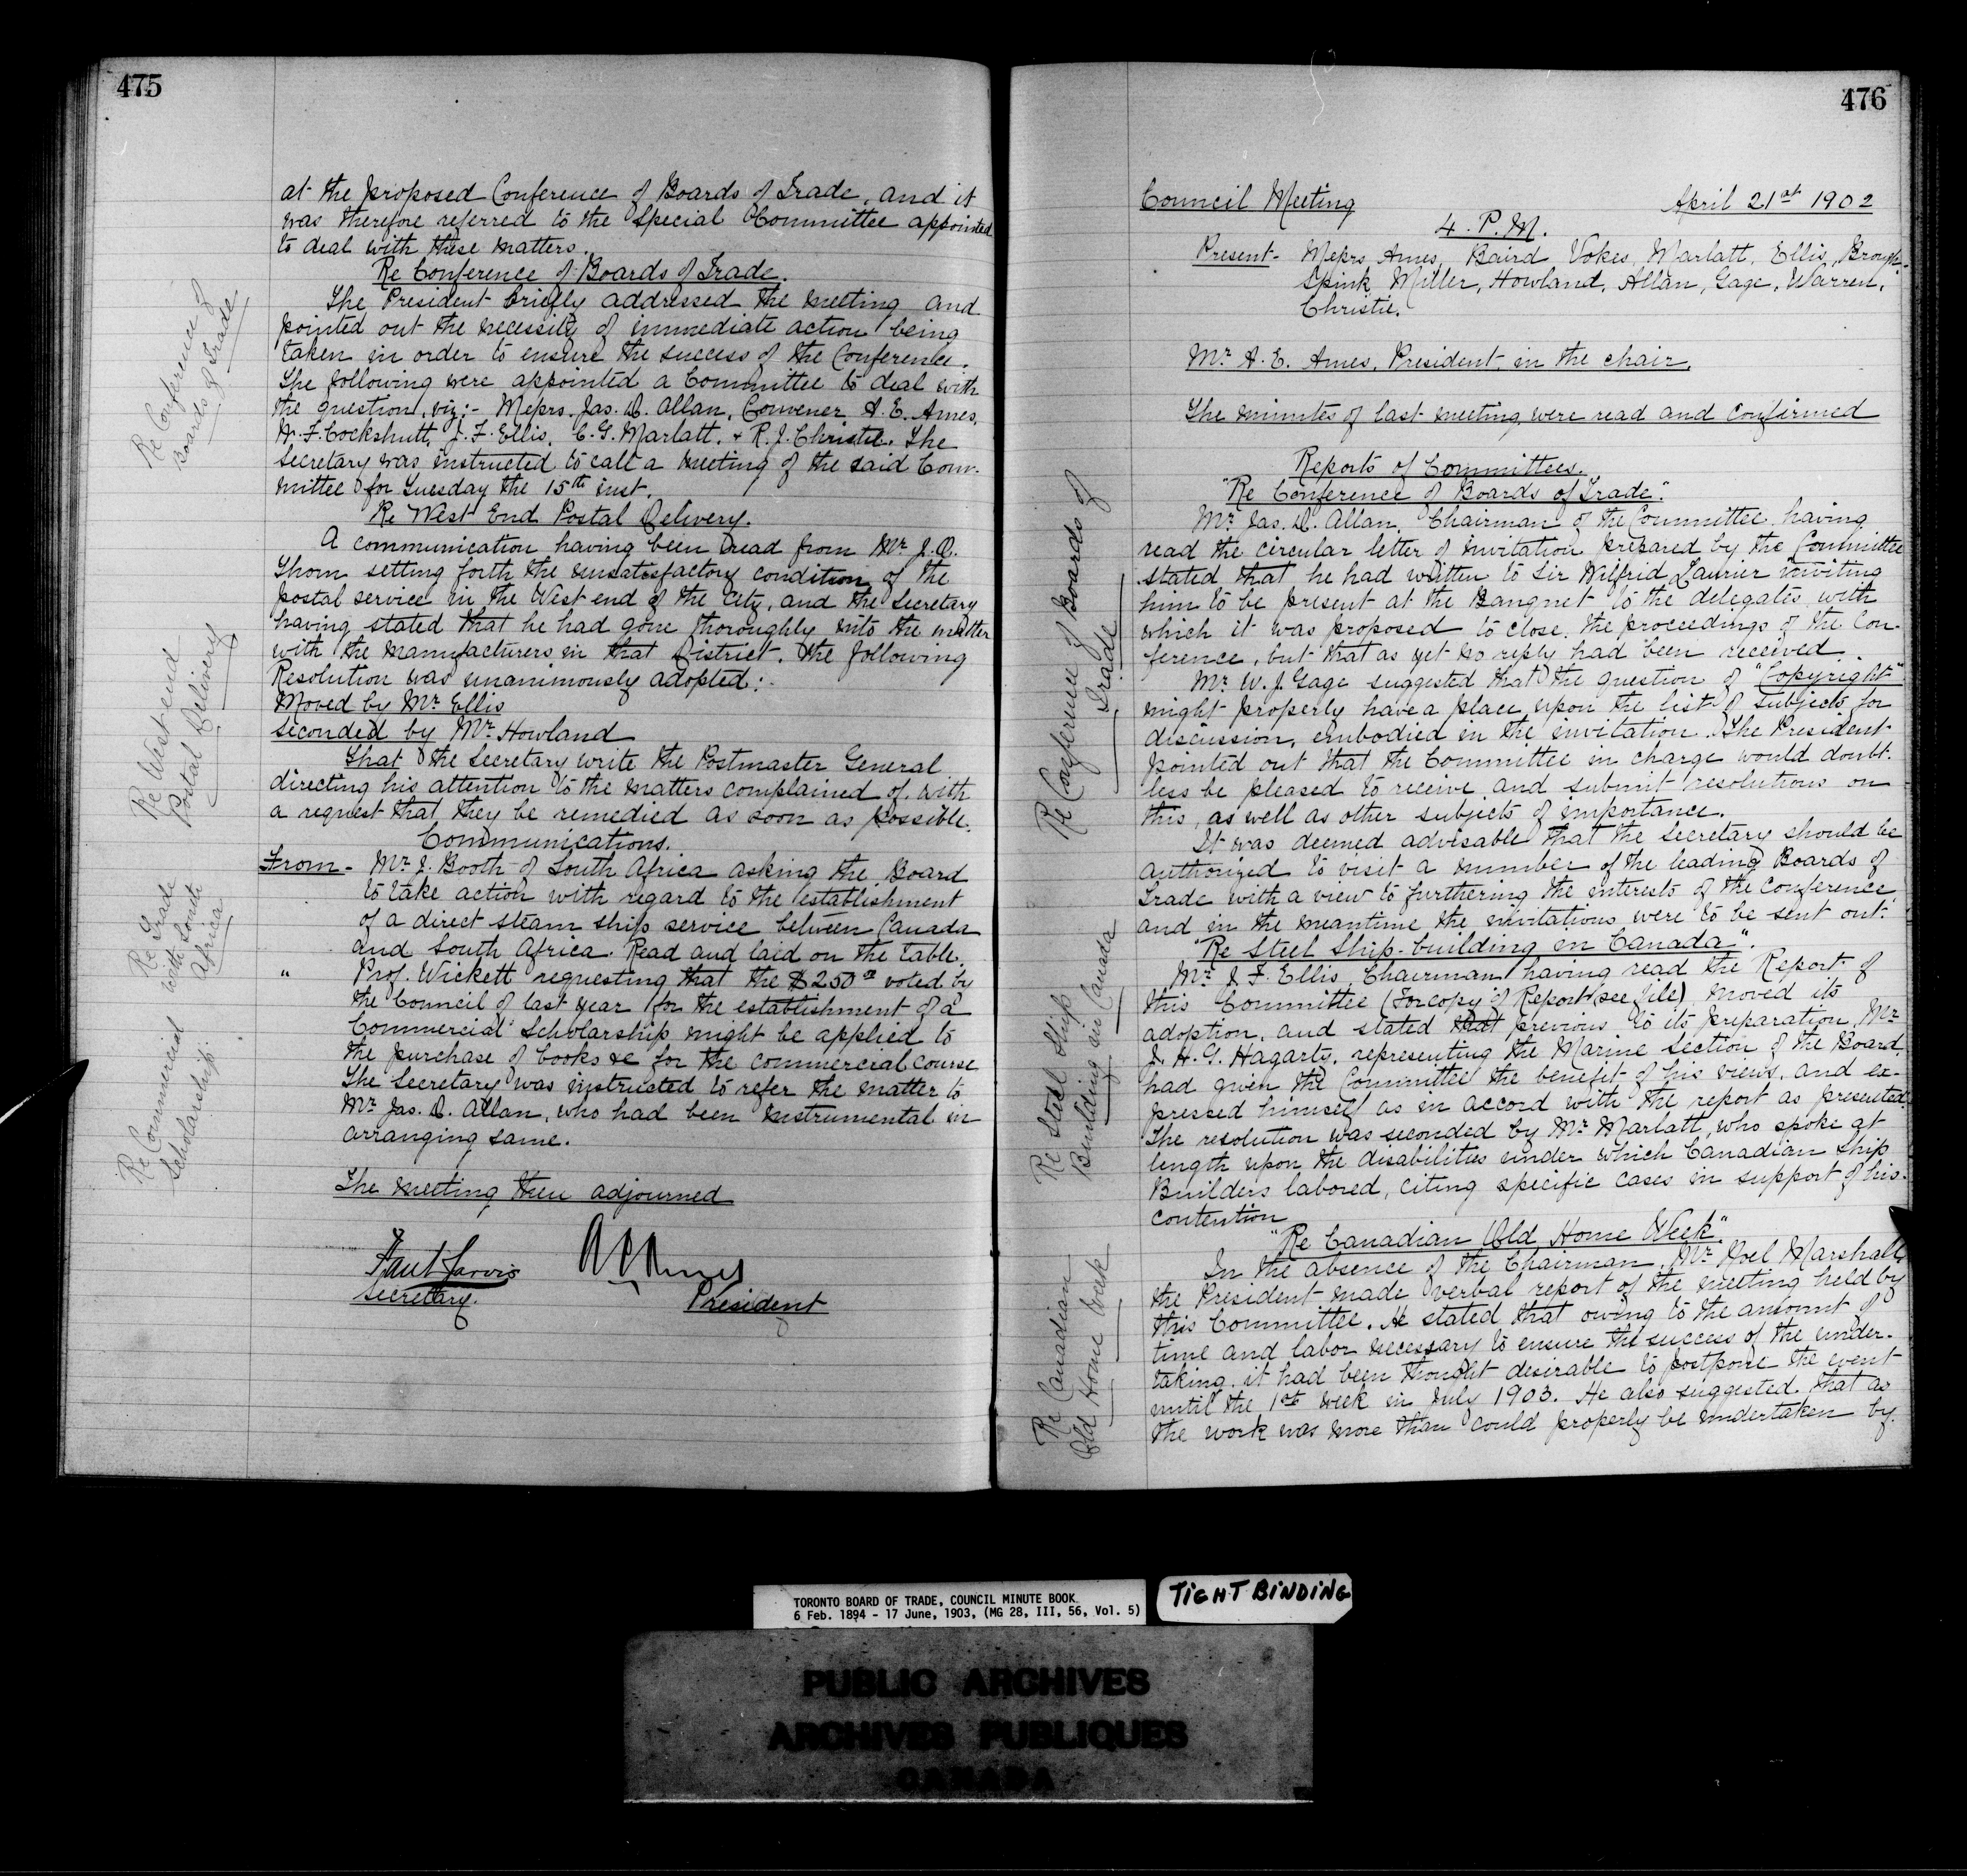 475
at the proposed Conference of Boards of Trade, and it
was therefore referred to the Special Committee appointed
to deal with these matters.
Re Conference of Boards of Trade.
The President briefly addressed the meeting and
pointed out the necessity of immediate action being
taken in order to ensure the success of the Conference.
The following were appointed a Committee to deal with
the question, viz:- Messrs. Jas. D. Allan, Convener A. E. Ames,
W. F. Cockshutt, J. F. Ellis, C. G. Marlatt, & R. J. Christie. The
Secretary was instructed to call a meeting of the said Com-
mittee for Tuesday the 15th inst.
Re West End Postal Delivery.
A communication having been read from Mr J. D.
Thom setting forth the unsatisfactory condition of the
postal service in the West end of the City, and the Secretary
having stated that he had gone thoroughly into the matter
with the manufacturers in that District. The following
Resolution was unanimously adopted:-
Moved by Mr Ellis
Seconded by Mr Howland
That the Secretary write the Postmaster General
directing his attention to the matters complained of, with
a request that they be remedied as soon as possible.
Communications.
From - Mr J. Booth of South Africa asking the Board
to take action with regard to the establishment
of a direct steam ship service between Canada
and South Africa. Read and laid on the table.
" Prof. Wickett requesting that the $250 voted by
the Council of last year for the establishment of a
Commercial Scholarship might be applied to
the purchase of books &c for the commercial course
The Secretary was instructed to refer the matter to
Mr Jas. D. Allan, who had been instrumental in
arranging same.
The meeting then adjourned
Paul Jarvis
Secretary.
A E Ames
President
Re Conference of
Boards of Trade
Re West end
Postal Delivery
Re Trade
with South
Africa
Re Commercial
Scholarship.
476
Council Meeting April 21st 1902
4. P.M.
Present - Messrs Ames, Baird Vokes, Marlatt, Ellis, Brough-
Spink, Miller, Howland, Allan, Gage, Warren,
Christie.
Mr A. E. Ames, President, in the chair.
The minutes of last meeting were read and confirmed
Reports of Committees.
"Re Conference of Boards of Trade".
Mr Jas. D. Allan, Chairman of the Committee having
read the circular letter of invitation prepared by the Committee
stated that he had written to Sir Wilfrid Laurier inviting
him to be present at the Banquet to the delegates with
which it was proposed to close the proceedings of the Con-
ference, but that as yet no reply had been received.
Mr W. J. Gage suggested that the question of "Copyright"
might properly have a place upon the list of subjects for
discussion, embodied in the invitation. The President
pointed out that the Committee in charge would doubt-
less be pleased to receive and submit resolutions on
this, as well as other subjects of importance.
It was deemed advisable that the Secretary should be
authorized to visit a number of the leading Boards of
Trade with a view to furthering the interests of the Conference,
and in the meantime the invitations were to be sent out.
"Re Steel Ship-building in Canada".
Mr J. F. Ellis, Chairman having read the Report of
this Committee (For copy of Report see file) moved its
adoption, and stated that previous to its preparation, Mr
J. H. G. Hagarty, representing the Marine Section of the Board,
had given the Committee the benefit of his views, and ex-
pressed himself as in accord with the report as presented.
The resolution was seconded by Mr Marlatt, who spoke at
length upon the disabilities under which Canadian Ship
Builders labored, citing specific cases in support of his
contention
"Re Canadian Old Home Week"
In the absence of the Chairman, Mr Noel Marshall,
the President made verbal report of the meeting held by
this Committee. He stated that owing to the amount of
time and labor necessary to ensure the success of the under-
taking, it had been thought desirable to postpone the event
until the 1st week in July 1903. He also suggested that as
the work was more than could properly be undertaken by
Re Conference of Boards of
Trade
Re Steel Ship
Building in Canada
Re Canadian
Old Home Week
TORONTO BOARD OF TRADE, COUNCIL MINUTE BOOK
6 Feb. 1894 - 17 June, 1903, (MG 28, III, 56, Vol. 5)
TIGHT BINDING
PUBLIC ARCHIVES
ARCHIVES PUBLIQUES
CANADA